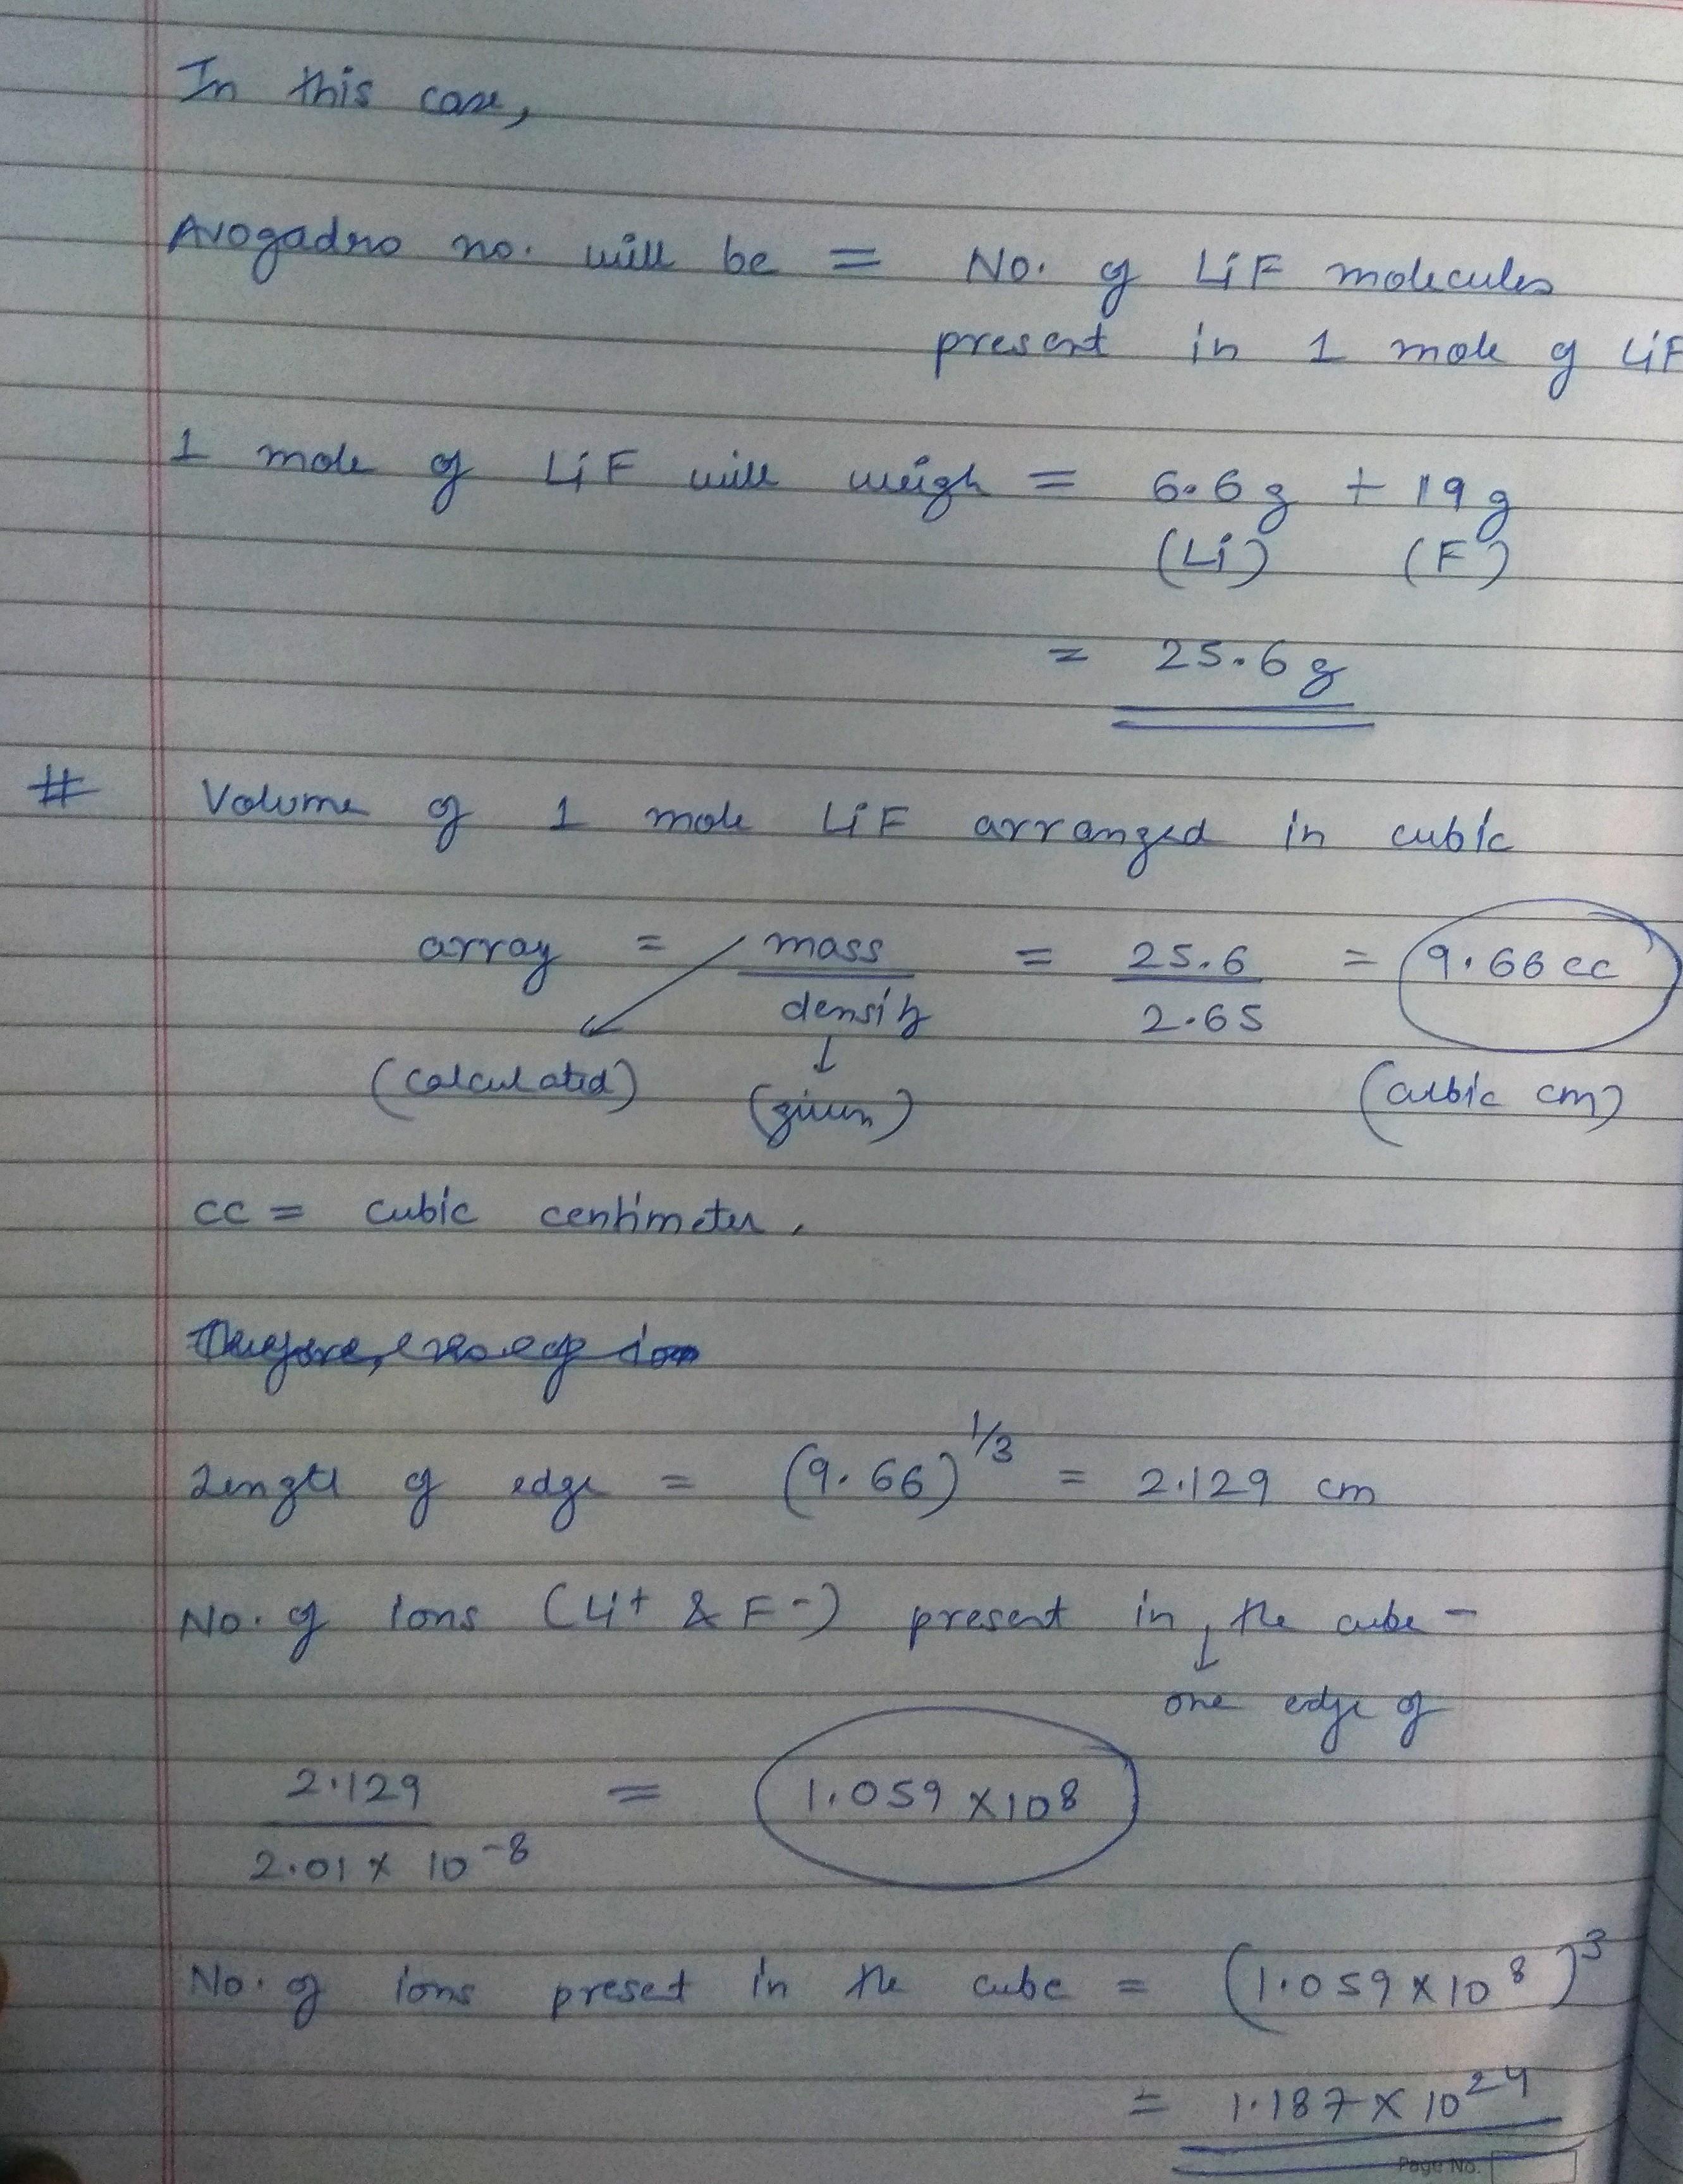 In this case,
Avogadro no. will be = No. of LiF molecules
present in 1 mole of LiF
1 mole of LiF will weigh = 6.6g + 19g
(Li) (F)
= 25.6g
# Volume of 1 mole LiF arranged in cubic
array = mass / density = 25.6 / 2.65 = 9.66 cc
(calculated) (given) (cubic cm)
cc = cubic centimeter.
Length of edge = (9.66)^1/3 = 2.129 cm
No. of ions (Li+ & F-) present in the cube -
one edge of
2.129 / 2.01 x 10^-8 = 1.059 x 10^8
No. of ions preset in the cube = (1.059 x 10^8)^3
= 1.187 x 10^24
Page No.